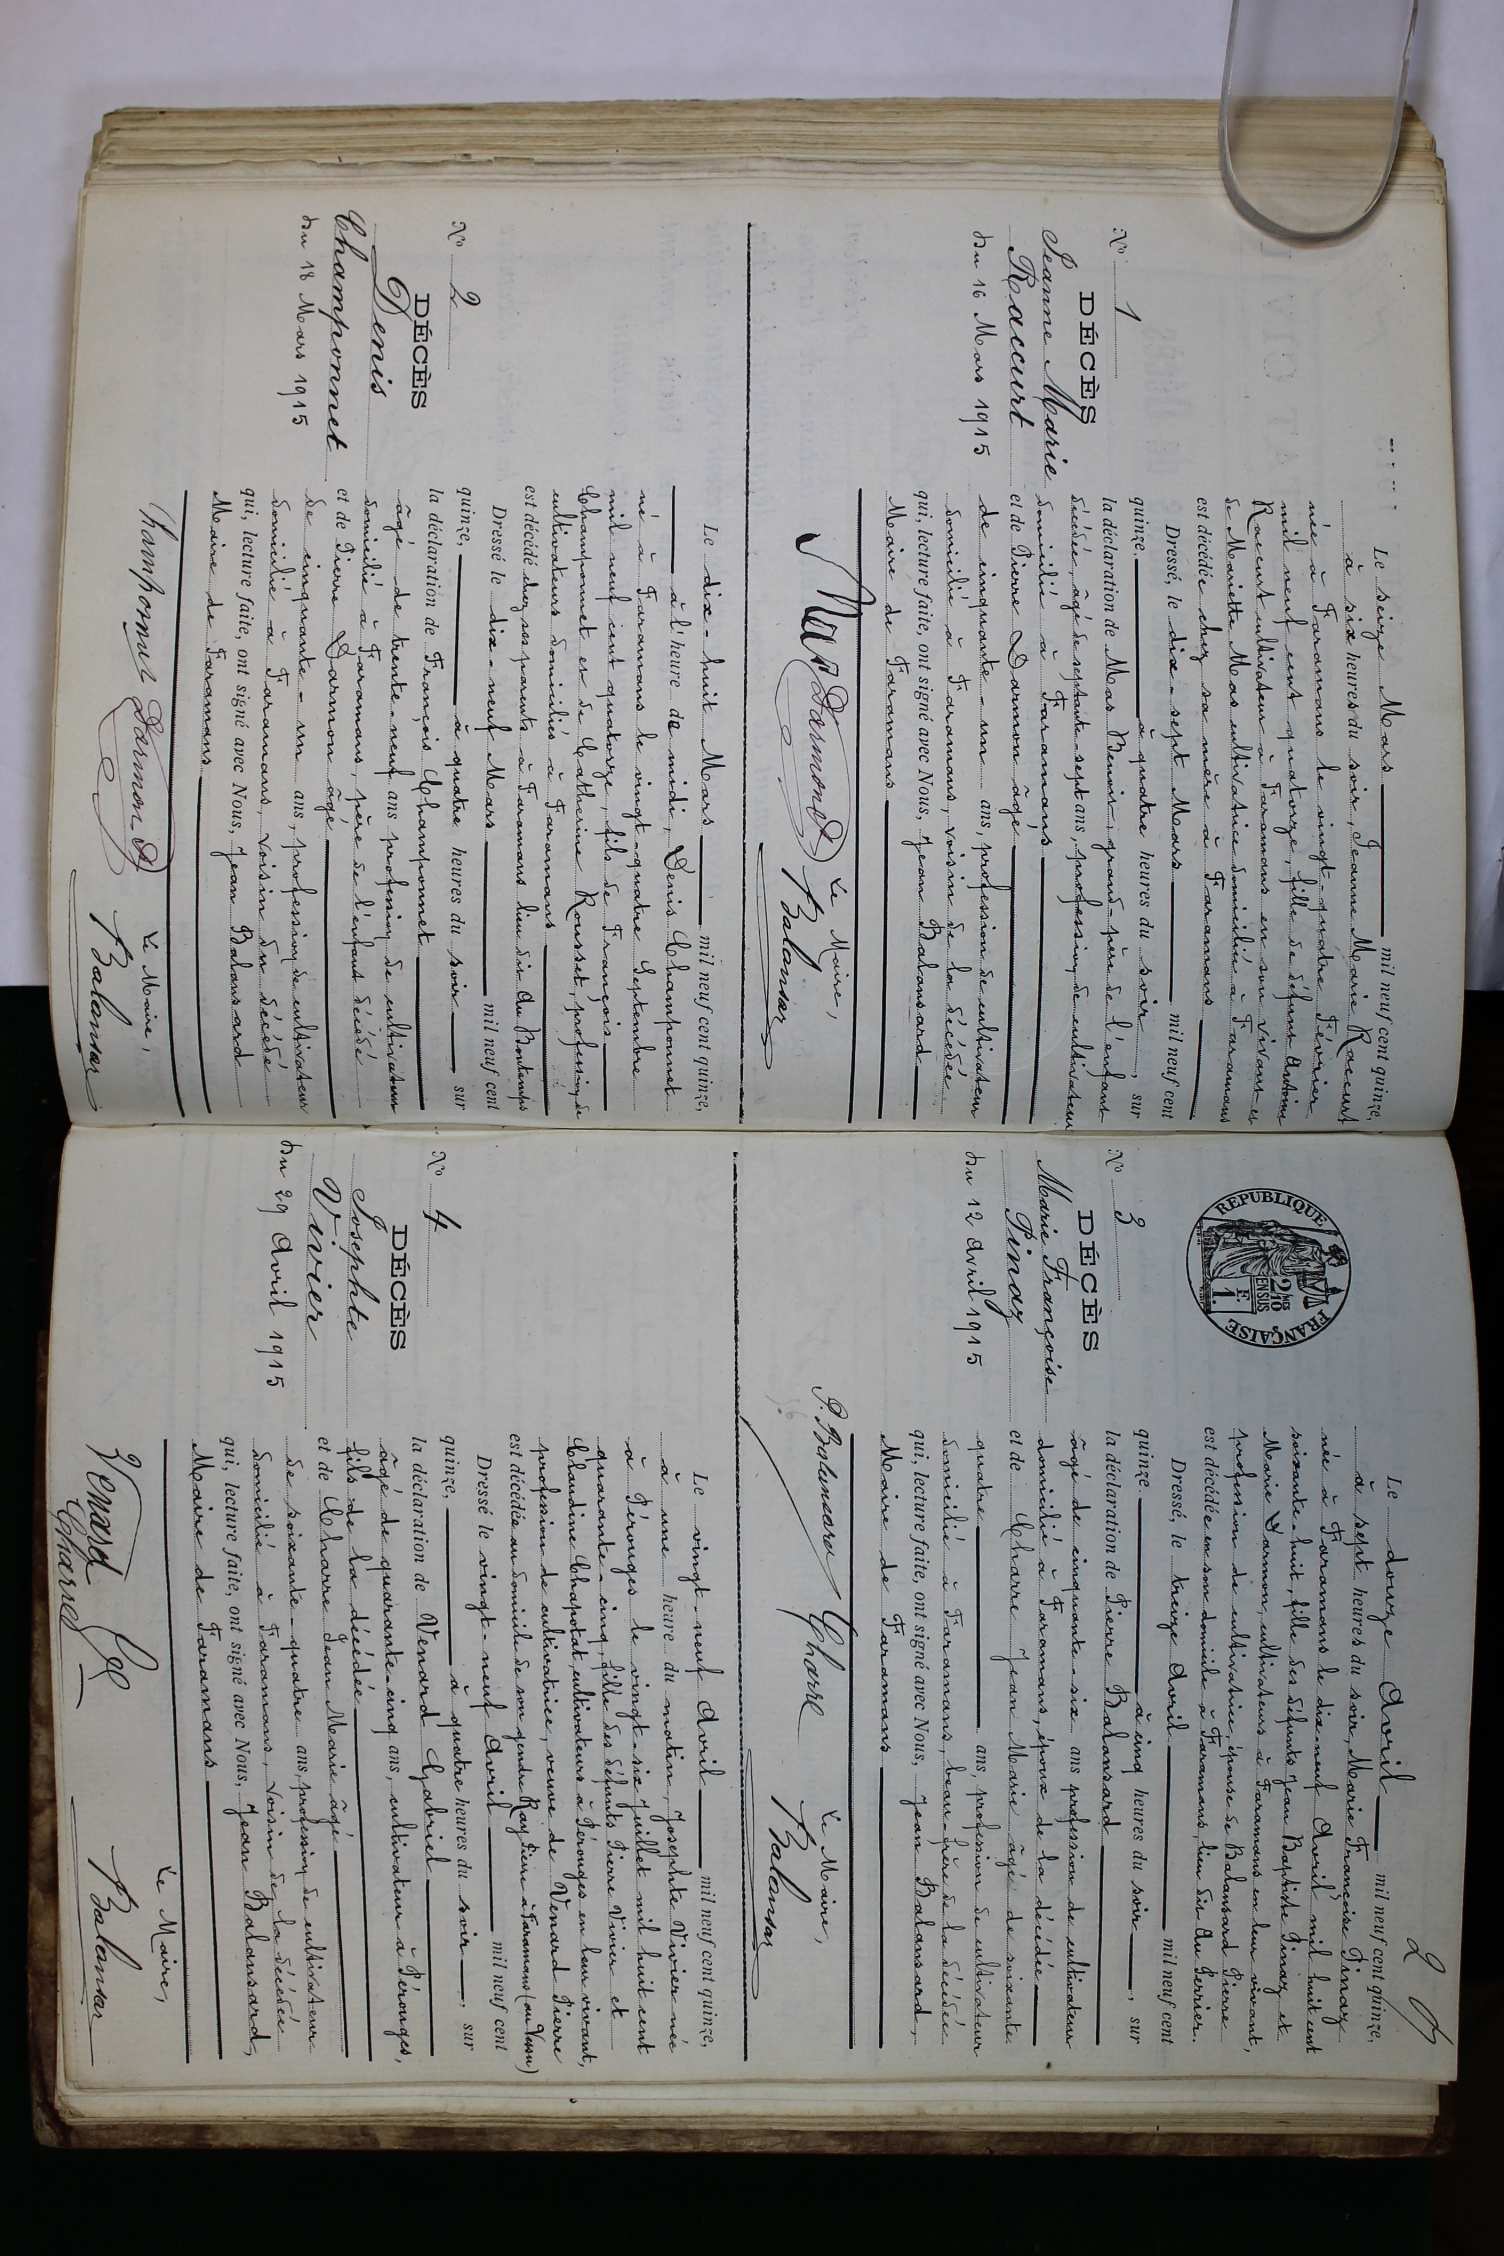 No 1
DÉCÈS
Jeanne Marie
Raccurt
du 16 Mars 1915
Le seize Mars mil neuf cent quinze,
à six heures du soir, Jeanne Marie Raccurt
née à Faramans le vingt-quatre Février
mil neuf cent quatorze, fille de défunt Antoine
Raccurt cultivateur à Faramans en son vivant et
de Mariette Mas cultivatrice domiciliée à Faramans
est décédée chez sa mère à Faramans
Dressé, le dix-sept Mars mil neuf cent
quinze, à quatre heures du soir, sur
la déclaration de Mas Benoit, grand-père de l'enfant
décédée, âgé de septante-sept ans, profession de cultivateur
domicilié à Faramans
et de Pierre Darmon âgé
de cinquante-un ans, profession de cultivateur
domicilié à Faramans, voisin de la décédée
qui, lecture faite, ont signé avec Nous, Jean Balansard
Maire de Faramans
Le Maire,
Mas Darmon Balansar
No 2
DÉCÈS
Denis
Champonnet
du 18 Mars 1915
Le dix-huit Mars mil neuf cent quinze,
à l'heure de midi, Denis Champonnet
né à Faramans le vingt-quatre Septembre
mil neuf cent quatorze, fils de François
Champonnet et de Catherine Rousset, profession de
cultivateurs domiciliés à Faramans
est décédé chez ses parents à Faramans lieu dit Au Bontemps
Dressé le dix-neuf Mars mil neuf cent
quinze, à quatre heures du soir, sur
la déclaration de François Champonnet
âgé de trente-neuf ans profession de cultivateur
domicilié à Faramans, père de l'enfant décédé
et de Pierre Darmon âgé
de cinquante-un ans, profession de cultivateur
domicilié à Faramans, voisin du décédé
qui, lecture faite, ont signé avec Nous, Jean Balansard
Maire de Faramans
Le Maire,
Champonnet Darmon Balansar
2
No 3
REPUBLIQUE FRANÇAISE
2/10 EN SUS
1 F.
DÉCÈS
Marie Françoise
Pinaz
du 12 Avril 1915
Le douze Avril mil neuf cent quinze,
à sept heures du soir, Marie Françoise Pinaz
née à Faramans le dix-neuf Avril mil huit cent
soixante-huit, fille des défunts Jean Baptiste Pinaz et
Marie Darmon, cultivateurs à Faramans en leur vivant,
profession de cultivatrice, épouse de Balansard Pierre
est décédée en son domicile à Faramans, lieu dit Au Perrier.
Dressé, le treize Avril mil neuf cent
quinze à cinq heures du soir, sur
la déclaration de Pierre Balansard
âgé de cinquante-six ans profession de cultivateur
domicilié à Faramans, époux de la décédée
et de Charre Jean Marie âgé de soixante
quatre ans, profession de cultivateur
domicilié à Faramans, beau-frère de la décédée
qui, lecture faite, ont signé avec Nous, Jean Balansard,
Maire de Faramans
Le Maire,
P. Balansard Charre Balansar
No 4
DÉCÈS
Josephte
Vivier
du 29 Avril 1915
Le vingt-neuf Avril mil neuf cent quinze,
à une heure du matin, Josephte Vivier née
à Pérouges le vingt-six Juillet mil huit cent
quarante-cinq, fille des défunts Pierre Vivier et
Claudine Chapotat, cultivateurs à Pérouges en leur vivant,
profession de cultivatrice, veuve de Venard Pierre
est décédée au domicile de son gendre Ray Pierre à Faramans (au Vussu)
Dressé le vingt-neuf Avril mil neuf cent
quinze, à quatre heures du soir, sur
la déclaration de Venard Gabriel
âgé de quarante-cinq ans, cultivateur à Pérouges,
fils de la décédée
et de Charre Jean Marie âgé
de soixante-quatre ans, profession de cultivateur
domicilié à Faramans, voisin de la décédée
qui, lecture faite, ont signé avec Nous, Jean Balansard,
Maire de Faramans
Le Maire,
Venard
Charre Balansar